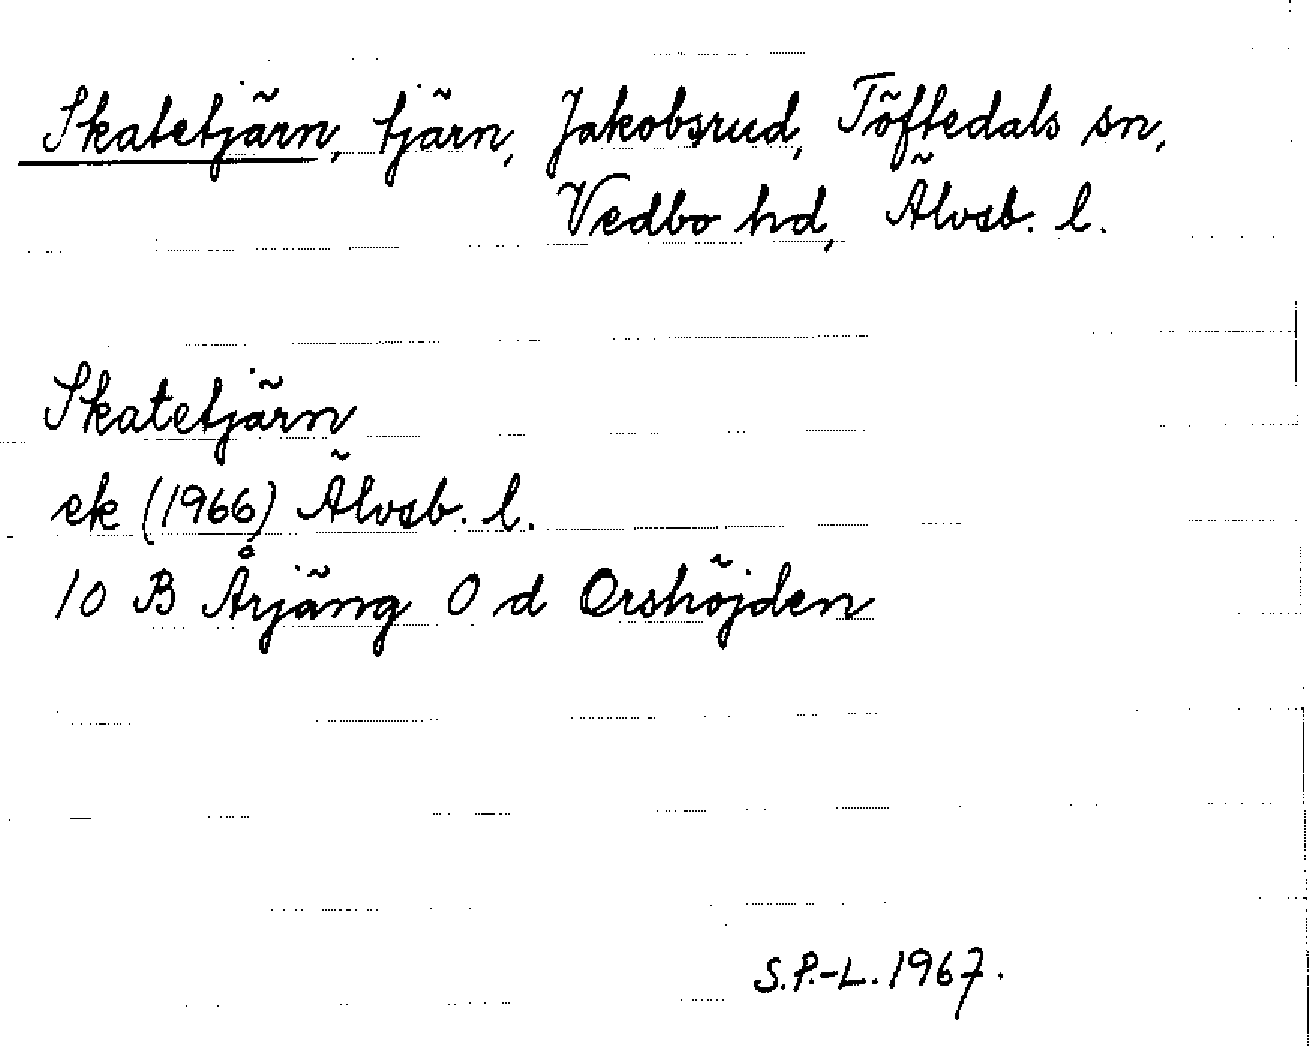 Skatetjärn, tjärn, Jakobsrud, Töftedals sn,
Vedbo hd, Älvsb. l.
Skatetjärn
ek (1966) Älvsb. l.
10 B Årjäng 0 d Orshöjden
S.P.-L. 1967.